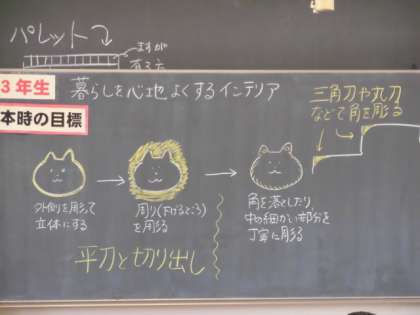 パレット
ますが
有る方
3年生
暮らしを心地よくするインテリア
本時の目標
三角刀や丸刀
などで角を彫る
外側を彫って
立体にする
周り(下げるところ)
を彫る
角を落としたり、
中の細かい部分を
丁寧に彫る
平刀と切り出し